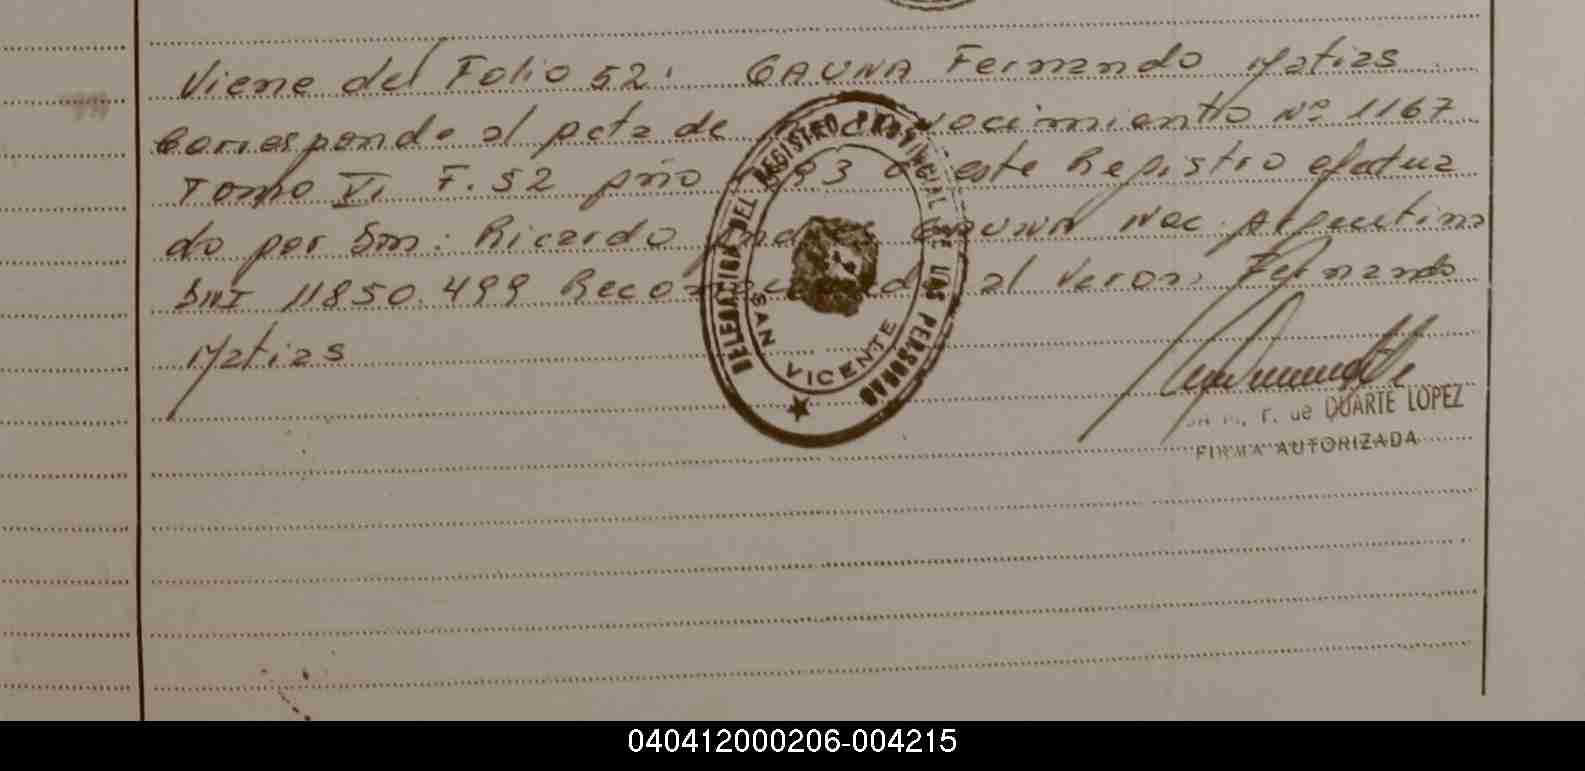 Viene del Folio 52: GAUNA Fernando Matias
Corresponde al acta de Reconocimiento Nº 1167
Tomo VI F. 52 año 1993 de este Registro efectua
do por Don: Ricardo Andres GAUNA Nac. Argentina
DNI 11850.499 Reconociendo al Varon: Fernando
Matias
DELEGACION DEL REGISTRO PROVINCIAL DE LAS PERSONAS
SAN VICENTE
F. de DUARTE LOPEZ
FIRMA AUTORIZADA
040412000206-004215